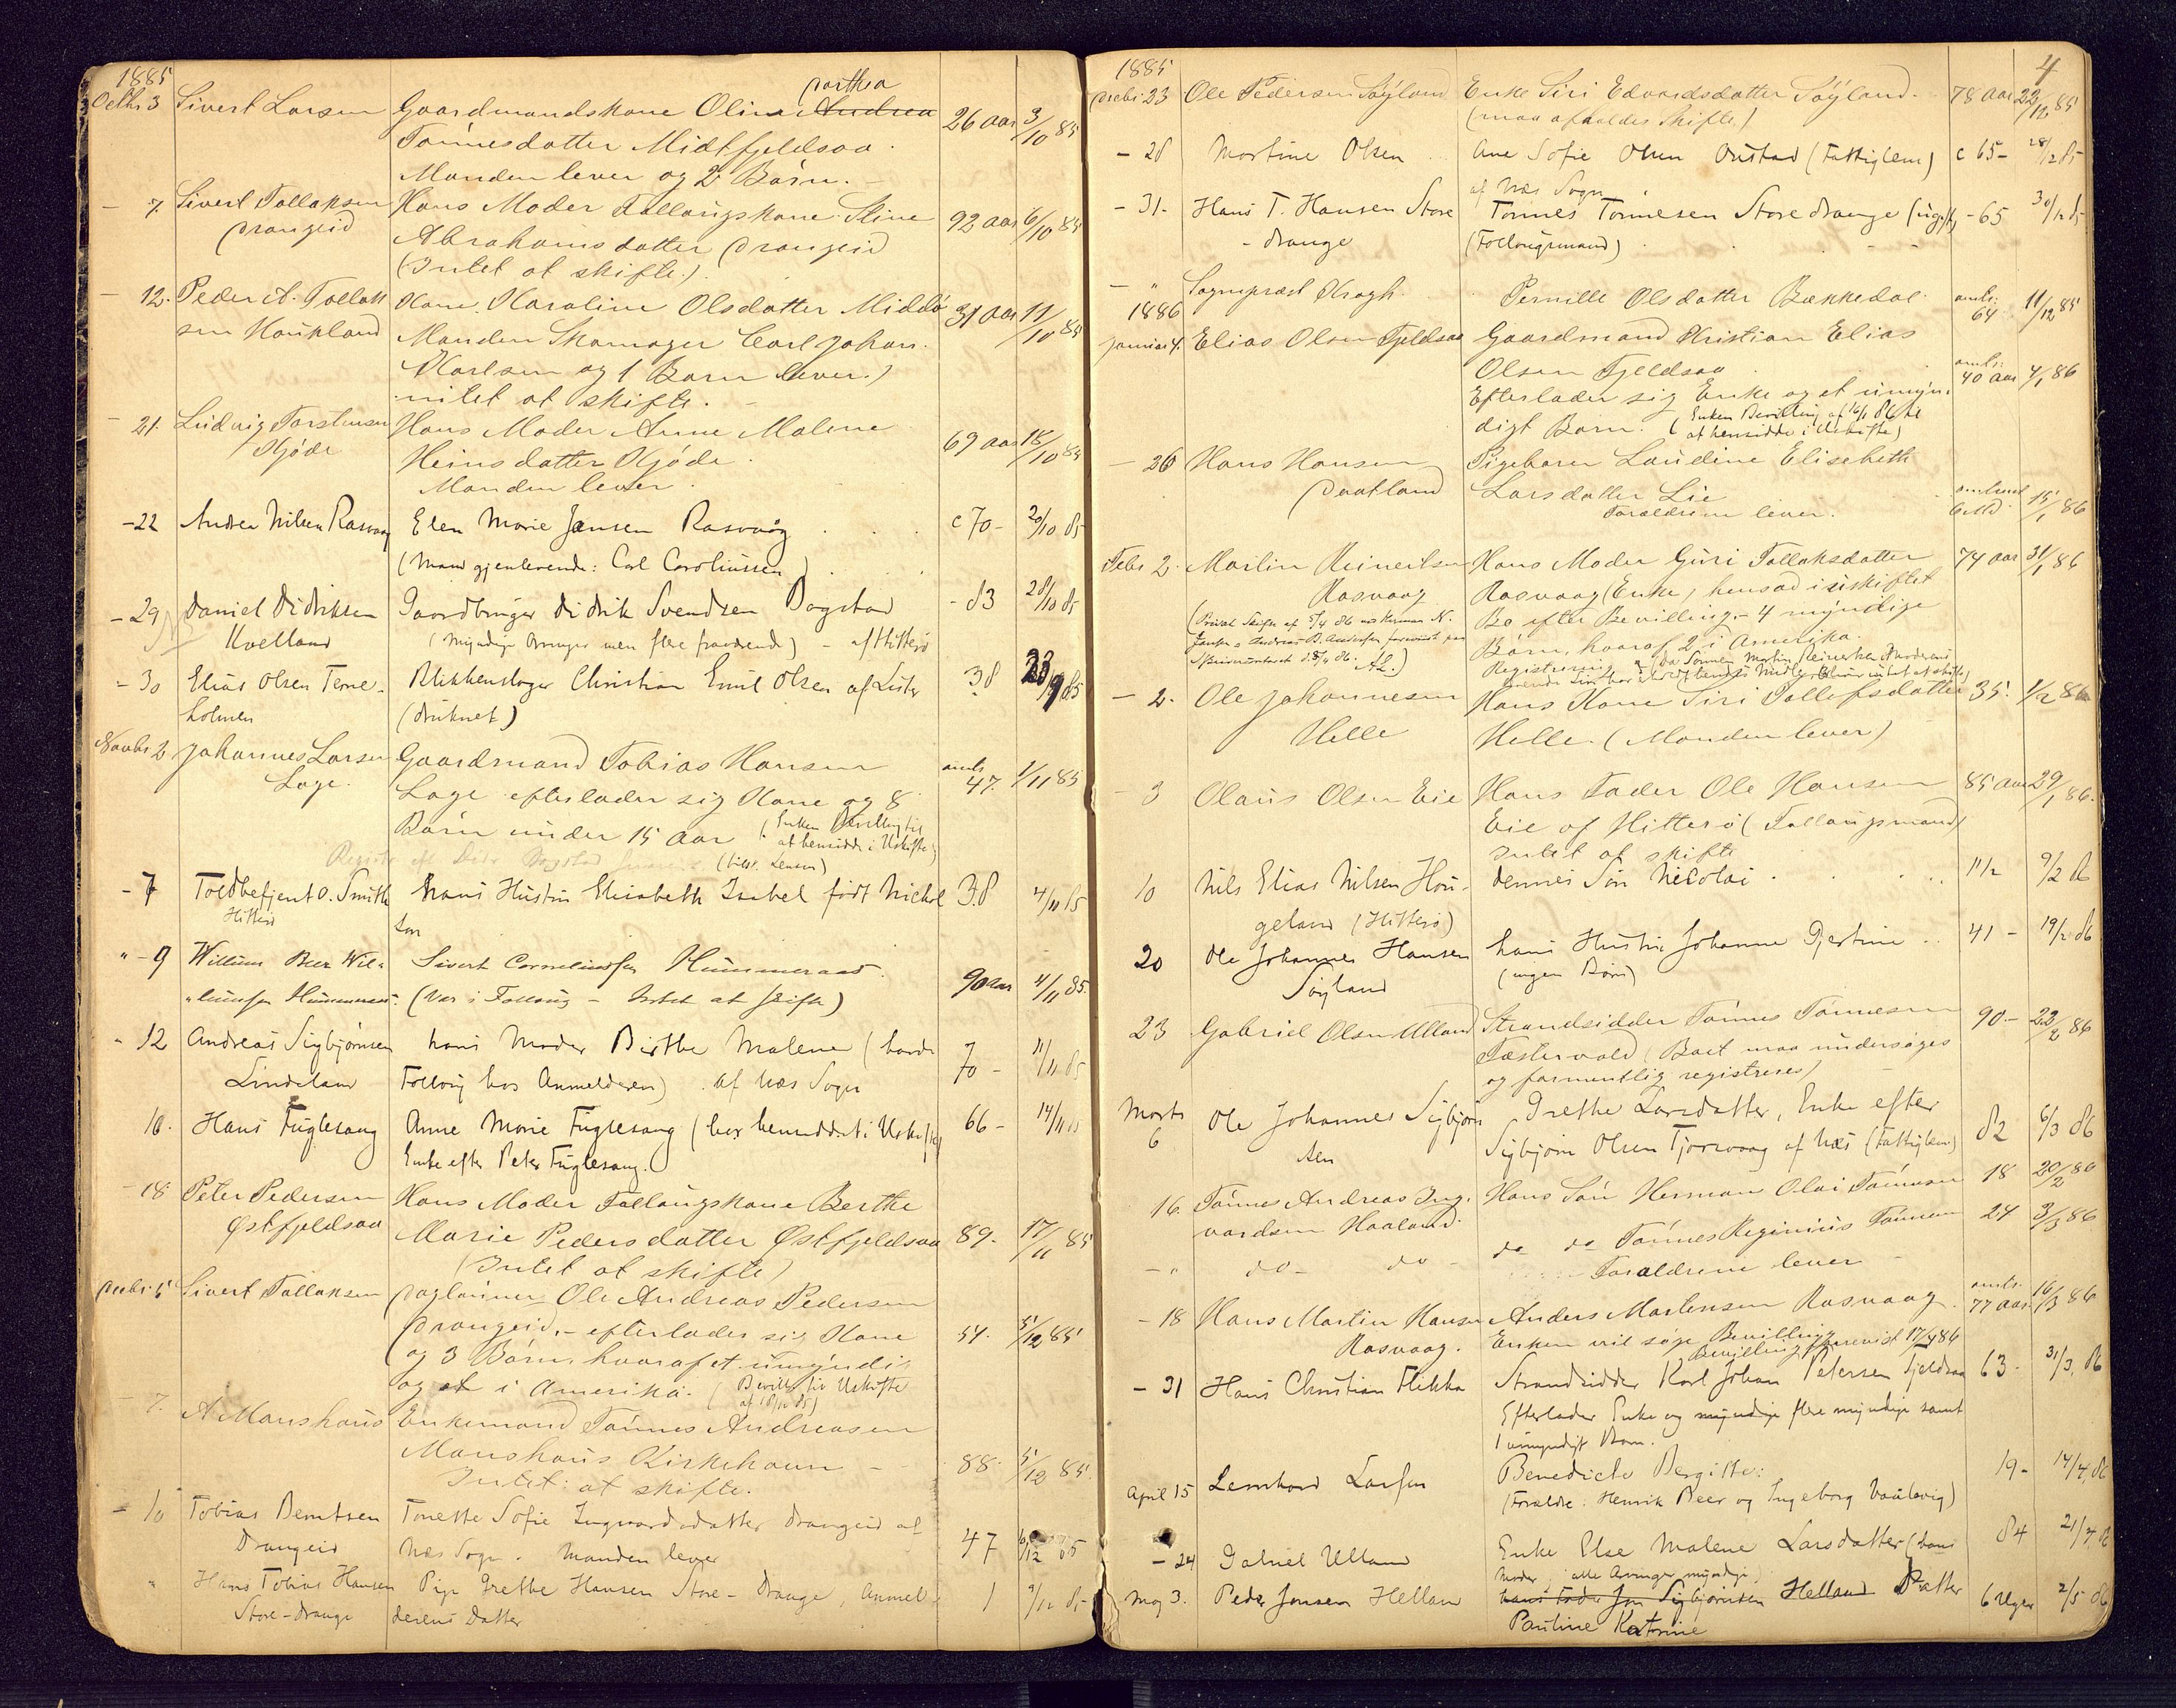 1885
Octbr 3 Sivert Larsen Gaardmandskone Olina Andrea Dorthea 26 aar 3/10 85
Tønnesdatter Midtfjeldsaa.
Manden lever og 2 Børn.
- 7. Sivert Tollaksen Hans Moder Follaugskone Stine 92 aar 6/10 85
Drangeid Abrahamsdatter Drangeid
(Intet at skifte.)
- 12. Peder A. Tollak Kone Karoline Olsdatter Middø 31 aar 11/10 85
sen Haukland Manden Skomager Carl Johan
Karlsen og 1 Barn lever.)
intet at skifte.
- 21. Ludvig Torstensen Hans Moder Anne Malene 69 aar 18/10 85
Kjøde Heinsdatter Kjøde.
Manden lever.
-22 Andrea Nilsen Rasvaag Elen Marie Jansen Rasvaag c 70- 20/10 85
(Mand gjenlevende: Carl Caroliussen)
-29 Daniel Didriksen Gaardbruger Didrik Svendsen Dogstad - 83 28/10 85
Kvelland (Myndige Arvinger men flere fraværende) - af Hitterø
- 30 Elias Olsen Terne- Blikkenslager Christian Emil Olsen af Lister 38 /9 85
holmen (druknet)
Novbr 2 Johannes Larsen Gaardmand Tobias Hansen amts 47. 1/11 85
Loge. Loge efterlader sig Kone og 8
Børn under 15 Aar (Enken Bevilling til
at hensidde i Uskifte)
(tilst. Lensm)
- 7 Toldbetjent O. Smith hans Hustru Elisabeth Isabel født Nichol 38 4/11 85
Hitterø son
" - 9 Willum Beer Wil- Sivert Corneliussen Hummeraas. 90 aar 4/11 85.
"lumsen Hummeraas. (Var i Follaug - Intet at skifte)
- 12 Andreas Sigbjørnsen hans Moder Birthe Malene (havde 70 - 11/11 85
Lindeland Follaug hos Anmelderen) af Næs Sogn
16. Hans Fuglesang Anne Marie Fuglesang (har hensiddet i Uskifte) 66 - 14/11 85
Enke efter Peter Fuglesang.
- 18 Peter Pedersen Hans Moder Follaugskone Berthe
Østfjeldsaa Marie Pedersdatter Østfjeldsaa 89. 17/11 85
(Intet at skifte)
Decbr. 5 Sivert Tollaksen Daglønner Ole Andreas Pedersen
Drangeid, - efterlader sig Kone 54. 5/12 85
og 3 Børn, hvoraf et umyndig
og et i Amerika. (Bevill. for Uskifte
af 18/12 85)
- 7. A Manshaus Enkemand Tønnes Andreasen
Manshaus Kirkehavn - 88. 5/12 85.
Intet at skifte.
- 10 Tobias Berntsen Tonette Sofie Ingvardsdatter Drangeid af 47 6/12 85
Drangeid Næs Sogn. Manden lever
" Hans Tobias Hansen Pige Grethe Hansen Store-Drange, Anmel- 1 9/12 85
Store-Drange derens Datter
4
1885
Decbr 23 Ole Pedersen Søyland Enke Siri Edvardsdatter Søyland. 78 aar 22/12 85
(maa afholdes Skifte)
- 28 Martine Olsen Ane Sofie Olsen Onstad (Fattiglem) c 65 - 28/12 85
af Næs Sogn
- 31. Hans T. Hansen Store Tønnes Tønnesen Store Drange (ugift) - 65 30/12 85
- Drange (Follougsmand)
- " Sogneprest Kragh. Pernille Olsdatter Bækkedal. amts. 64 11/12 85
1886
Januar 4. Elias Olsen Fjeldsaa Gaardmand Kristian Elias
Olsen Fjeldsaa amts. 40 aar 4/1 86
Efterlader sig Enke og et umyn-
digt Barn. (Enken Bevilling af 16/1 86 til
at hensidde i Uskifte)
- 26 Hans Hansen Pigebarn Laudine Elisebeth
Daatland Larsdatter Lie omtrent 6 Md. 15/1 86
Forældrene lever.
Febr 2. Martin Reinertsen Hans Moder Guri Tollaksdatter 74 aar 31/1 86
Rasvaag Rasvaag (Enke) hensad i uskiftet
Bo efter Bevilling. - 4 myndige
Børn, hvoraf 2 i Amerika.
- 2. Ole Johannesen Hans Kone Siri Tollefsdatter 35. 1/2 86
Helle Helle. (Manden lever)
- 3 Olaus Olsen Eie Hans Fader Ole Hansen 85 aar 29/1 86.
Eie af Hitterø (Follaugsmand)
Intet at skifte
10 Nils Elias Nilsen Hau- dennes Søn Nicolai 1 1/2 9/2 86
geland (Hitterø)
20 Ole Johannes Hansen hans Hustru Johanne Gjertine 41 - 19/2 86
Søyland (ingen Børn)
23 Gabriel Olsen Ulland Strandsidder Tønnes Tønnesen 90 - 22/2 86
Fæstervold (Boet maa undersøges
og formentlig registreres)
Marts
6 Ole Johannes Sigbjørn Grethe Larsdatter, Enke efter 82 6/3 86
sen Sigbjørn Olsen Tjorsvaag af Næs (Fattiglem)
16. Tønnes Andreas Ing- Hans Søn Herman Olai Tønnesen 18 20/2 86
vardsen Haaland.
- " do - do - do do Tønnes Reginius Tønnesen 24 3/3 86
Forældrene lever
- 18 Hans Martin Hansen Anders Martensen Rasvaag. amts. 77 aar 16/3 86
Rasvaag. Enken vil søge Bevilling
Bevilling forevist 17/4 86
- 31 Hans Christian Flikka Strandsidder Karl Johan Petersen Fjeldsaa 63 - 31/3 86
Efterlader Enke og myndige flere myndige samt
1 umyndigt Barn.
April 15 Lennhard Larsen Benedicte Bergitte: 19 - 14/4 86
(Forældre: Henrik Beer og Ingeborg Vaulevig)
- 24 Gabriel Ulland Enke Else Malene Larsdatter (hans 84 21/4 86
Moder, alle Arvinger myndige)
Maj 3. Peder Jonsen Helland hans Fader Jon Sigbjørnsen Helland Datter 6 Uger 2/5 86
Pauline Katrine